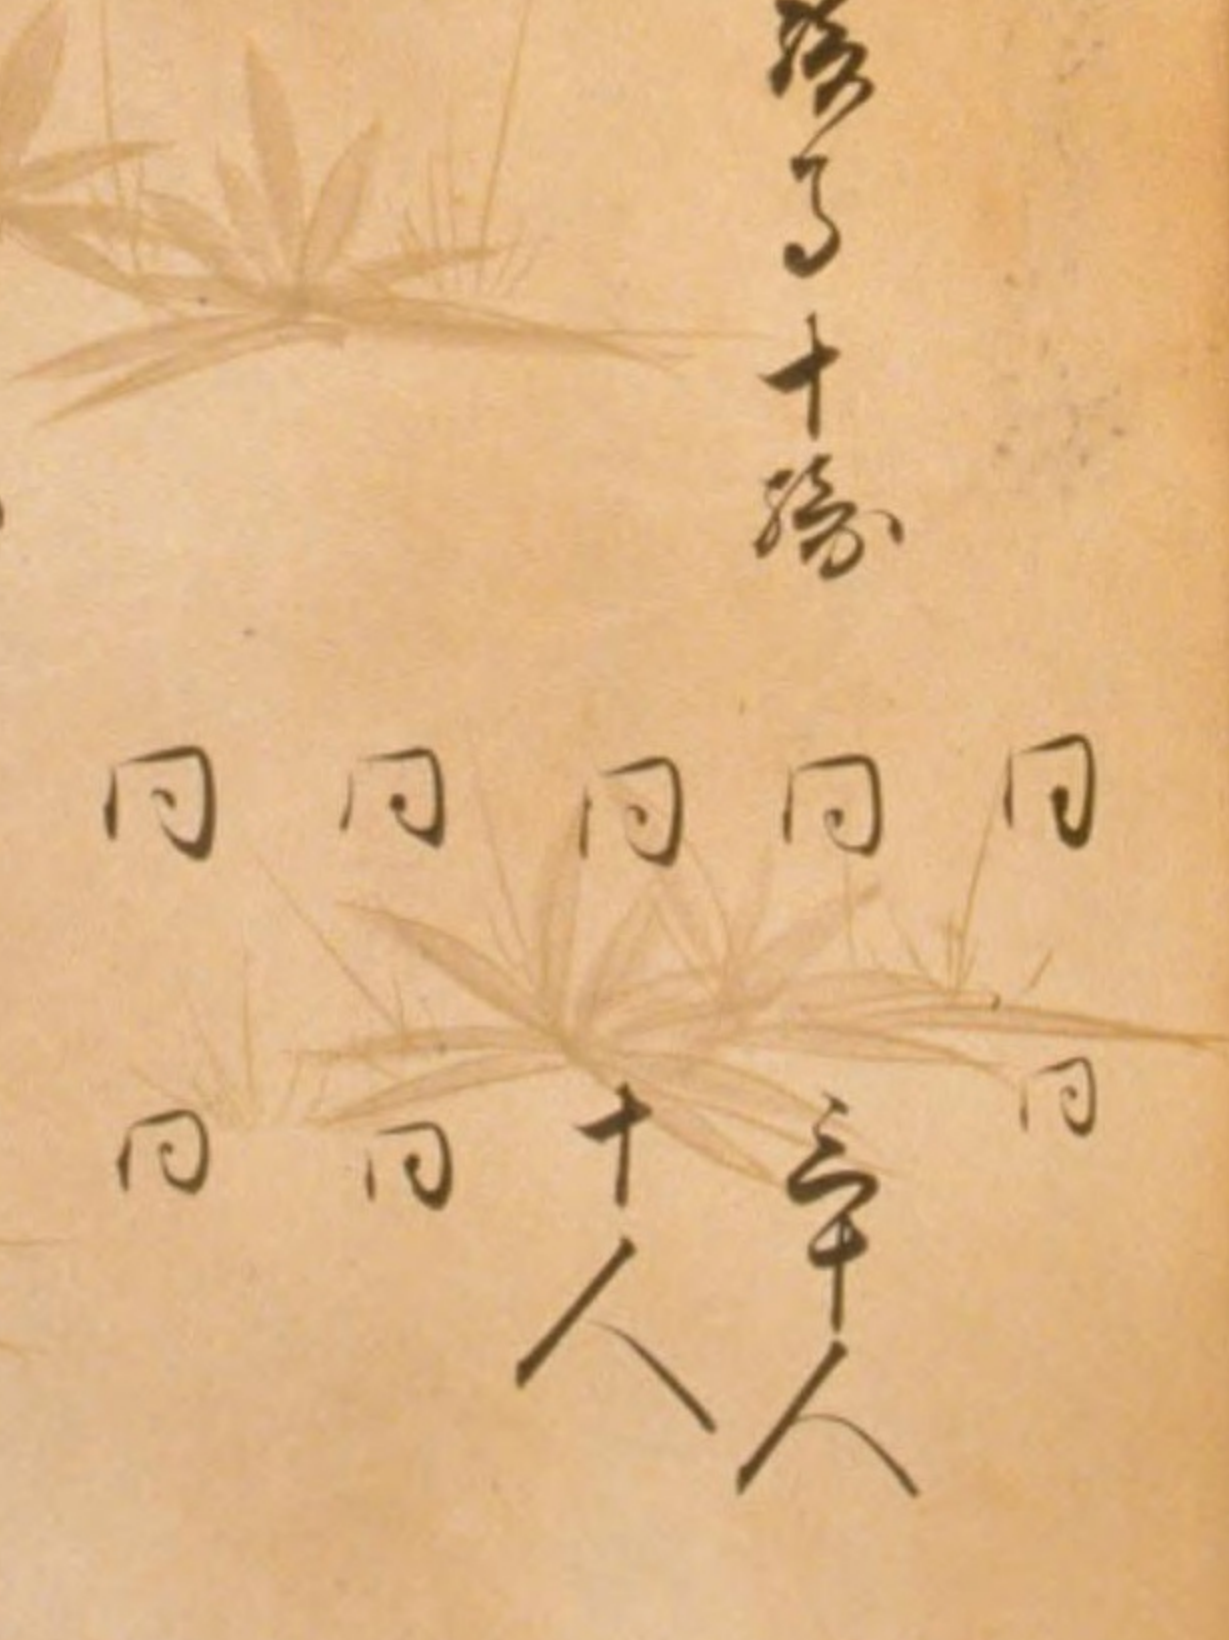 十騎
同 同
同 三十人
同 十人
同 同
同 同